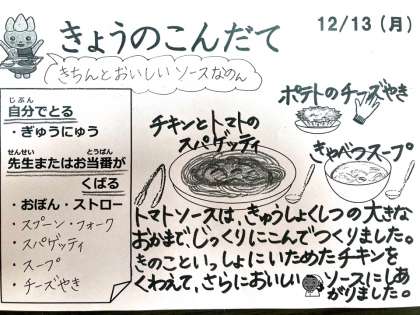 きょうのこんだて
12/13(月)
きちんとおいしいソースなのん
じぶん
自分でとる
・ぎゅうにゅう
せんせい とうばん
先生またはお当番が
くばる
・おぼん・ストロー
・スプーン・フォーク
・スパゲッティ
・スープ
・チーズやき
ポテトのチーズやき
チキンとトマトの
スパゲッティ
きゃべつスープ
トマトソースは、きゅうしょくしつの大きな
おかまで、じっくりにこんでつくりました。
きのこといっしょにいためたチキンを
くわえて、さらにおいしいソースにしあ
がりました。